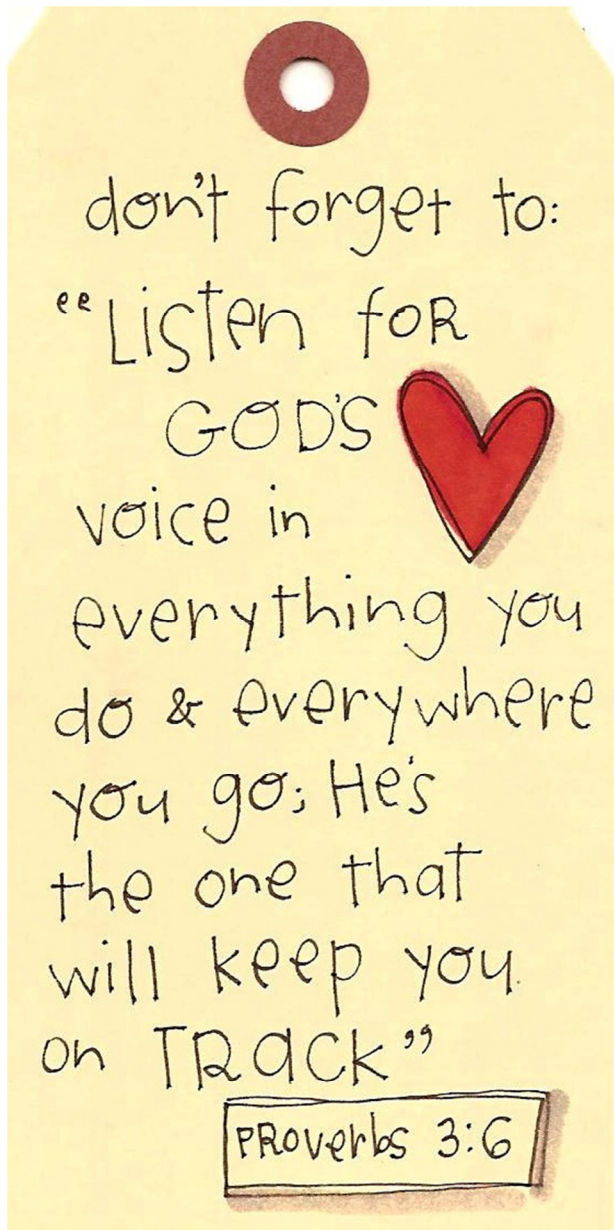 don't forget to:
"Listen foR
GOD'S
voice in
everything you
do & everywhere
you go; He's
the one that
will keep you
on TRacK"
PRoverbs 3:6